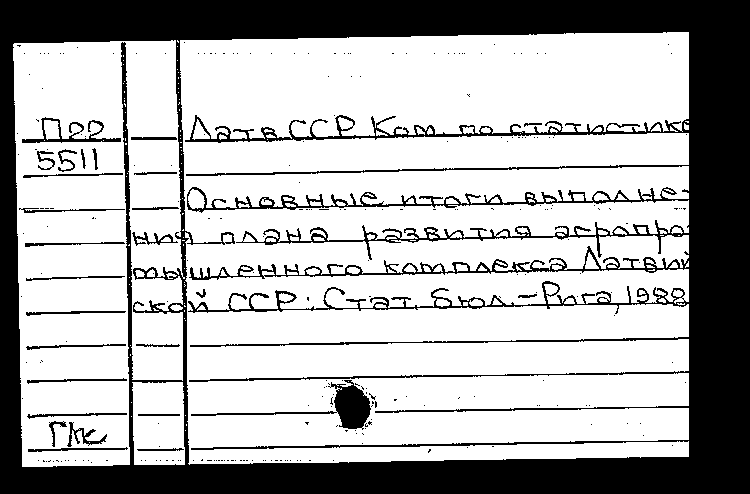 П22 Латв ССР Ком. по статистике
5511
Основные итоги выполне-
ния плана развития агропро-
мышленного комплекса Латвий
ской ССР: Стат. бюл. - Рига, 1988